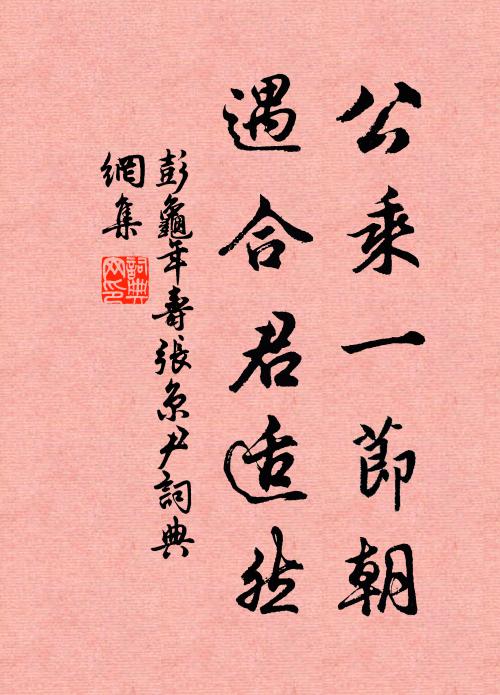 公乘一節朝
遇合君适然
彭龜年壽張京尹詞典
網集
詞典
网印